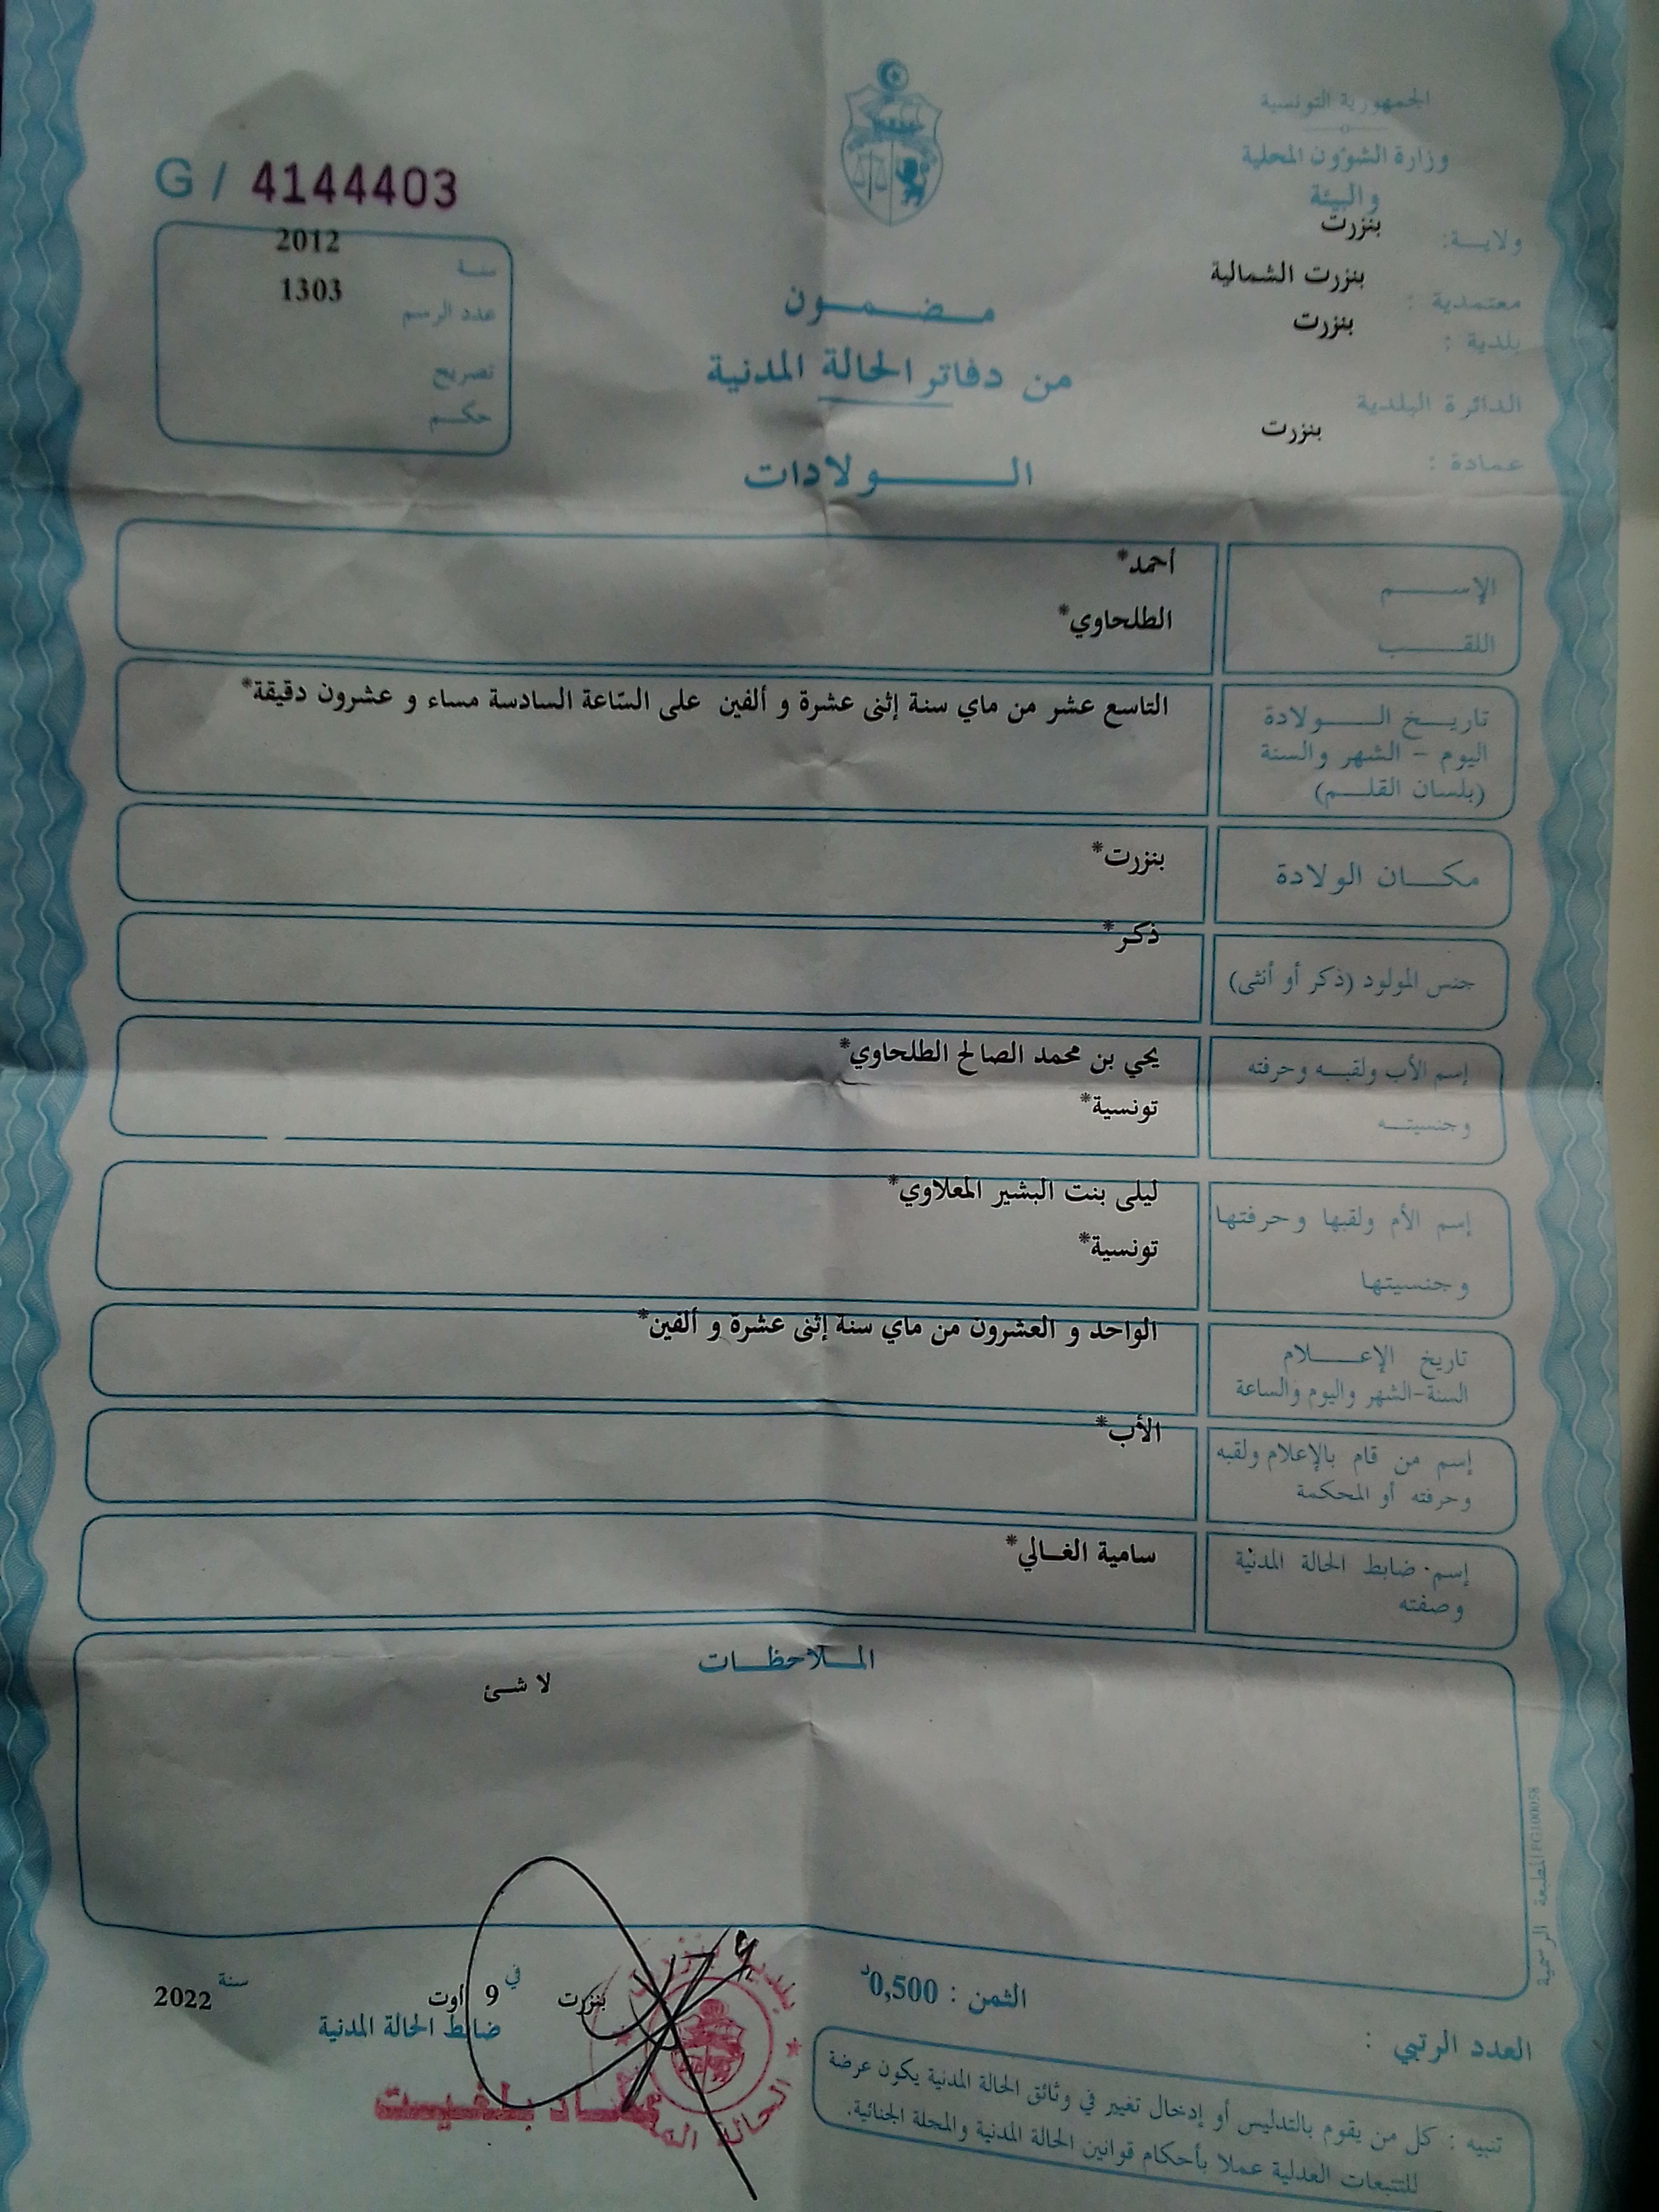 الجمهورية التونسية
وزارة الشؤون المحلية
والبيئة
ولاية: بنزرت
معتمدية : بنزرت الشمالية
بلدية : بنزرت
الدائرة البلدية
بنزرت
عمادة :
G / 4144403
سنة 2012
عدد الرسم 1303
تصريح
حكم
مضمون
من دفاتر الحالة المدنية
الولادات
الإسم أحمد*
اللقب الطلحاوي*
تاريخ الولادة
اليوم - الشهر والسنة
(بلسان القلم)
التاسع عشر من ماي سنة إثنى عشرة و ألفين على السّاعة السادسة مساء و عشرون دقيقة*
مكان الولادة بنزرت*
جنس المولود (ذكر أو أنثى) ذكر*
إسم الأب ولقبه وحرفته يحي بن محمد الصالح الطلحاوي*
وجنسيته تونسية*
إسم الأم ولقبها وحرفتها ليلى بنت البشير المعلاوي*
وجنسيتها تونسية*
تاريخ الإعلام
السنة-الشهر واليوم والساعة
الواحد و العشرون من ماي سنة إثنى عشرة و ألفين*
إسم من قام بالإعلام ولقبه
وحرفته أو المحكمة
الأب*
إسم ضابط الحالة المدنية
وصفته
سامية الغالي*
الملاحظات
لا شئ
المطبعة الرسمية FG100058
الثمن : 0,500د
بنزرت في 9 أوت سنة 2022
ضابط الحالة المدنية
العدد الرتبي :
تنبيه : كل من يقوم بالتدليس أو إدخال تغيير في وثائق الحالة المدنية يكون عرضة
للتتبعات العدلية عملا بأحكام قوانين الحالة المدنية والمجلة الجنائية.